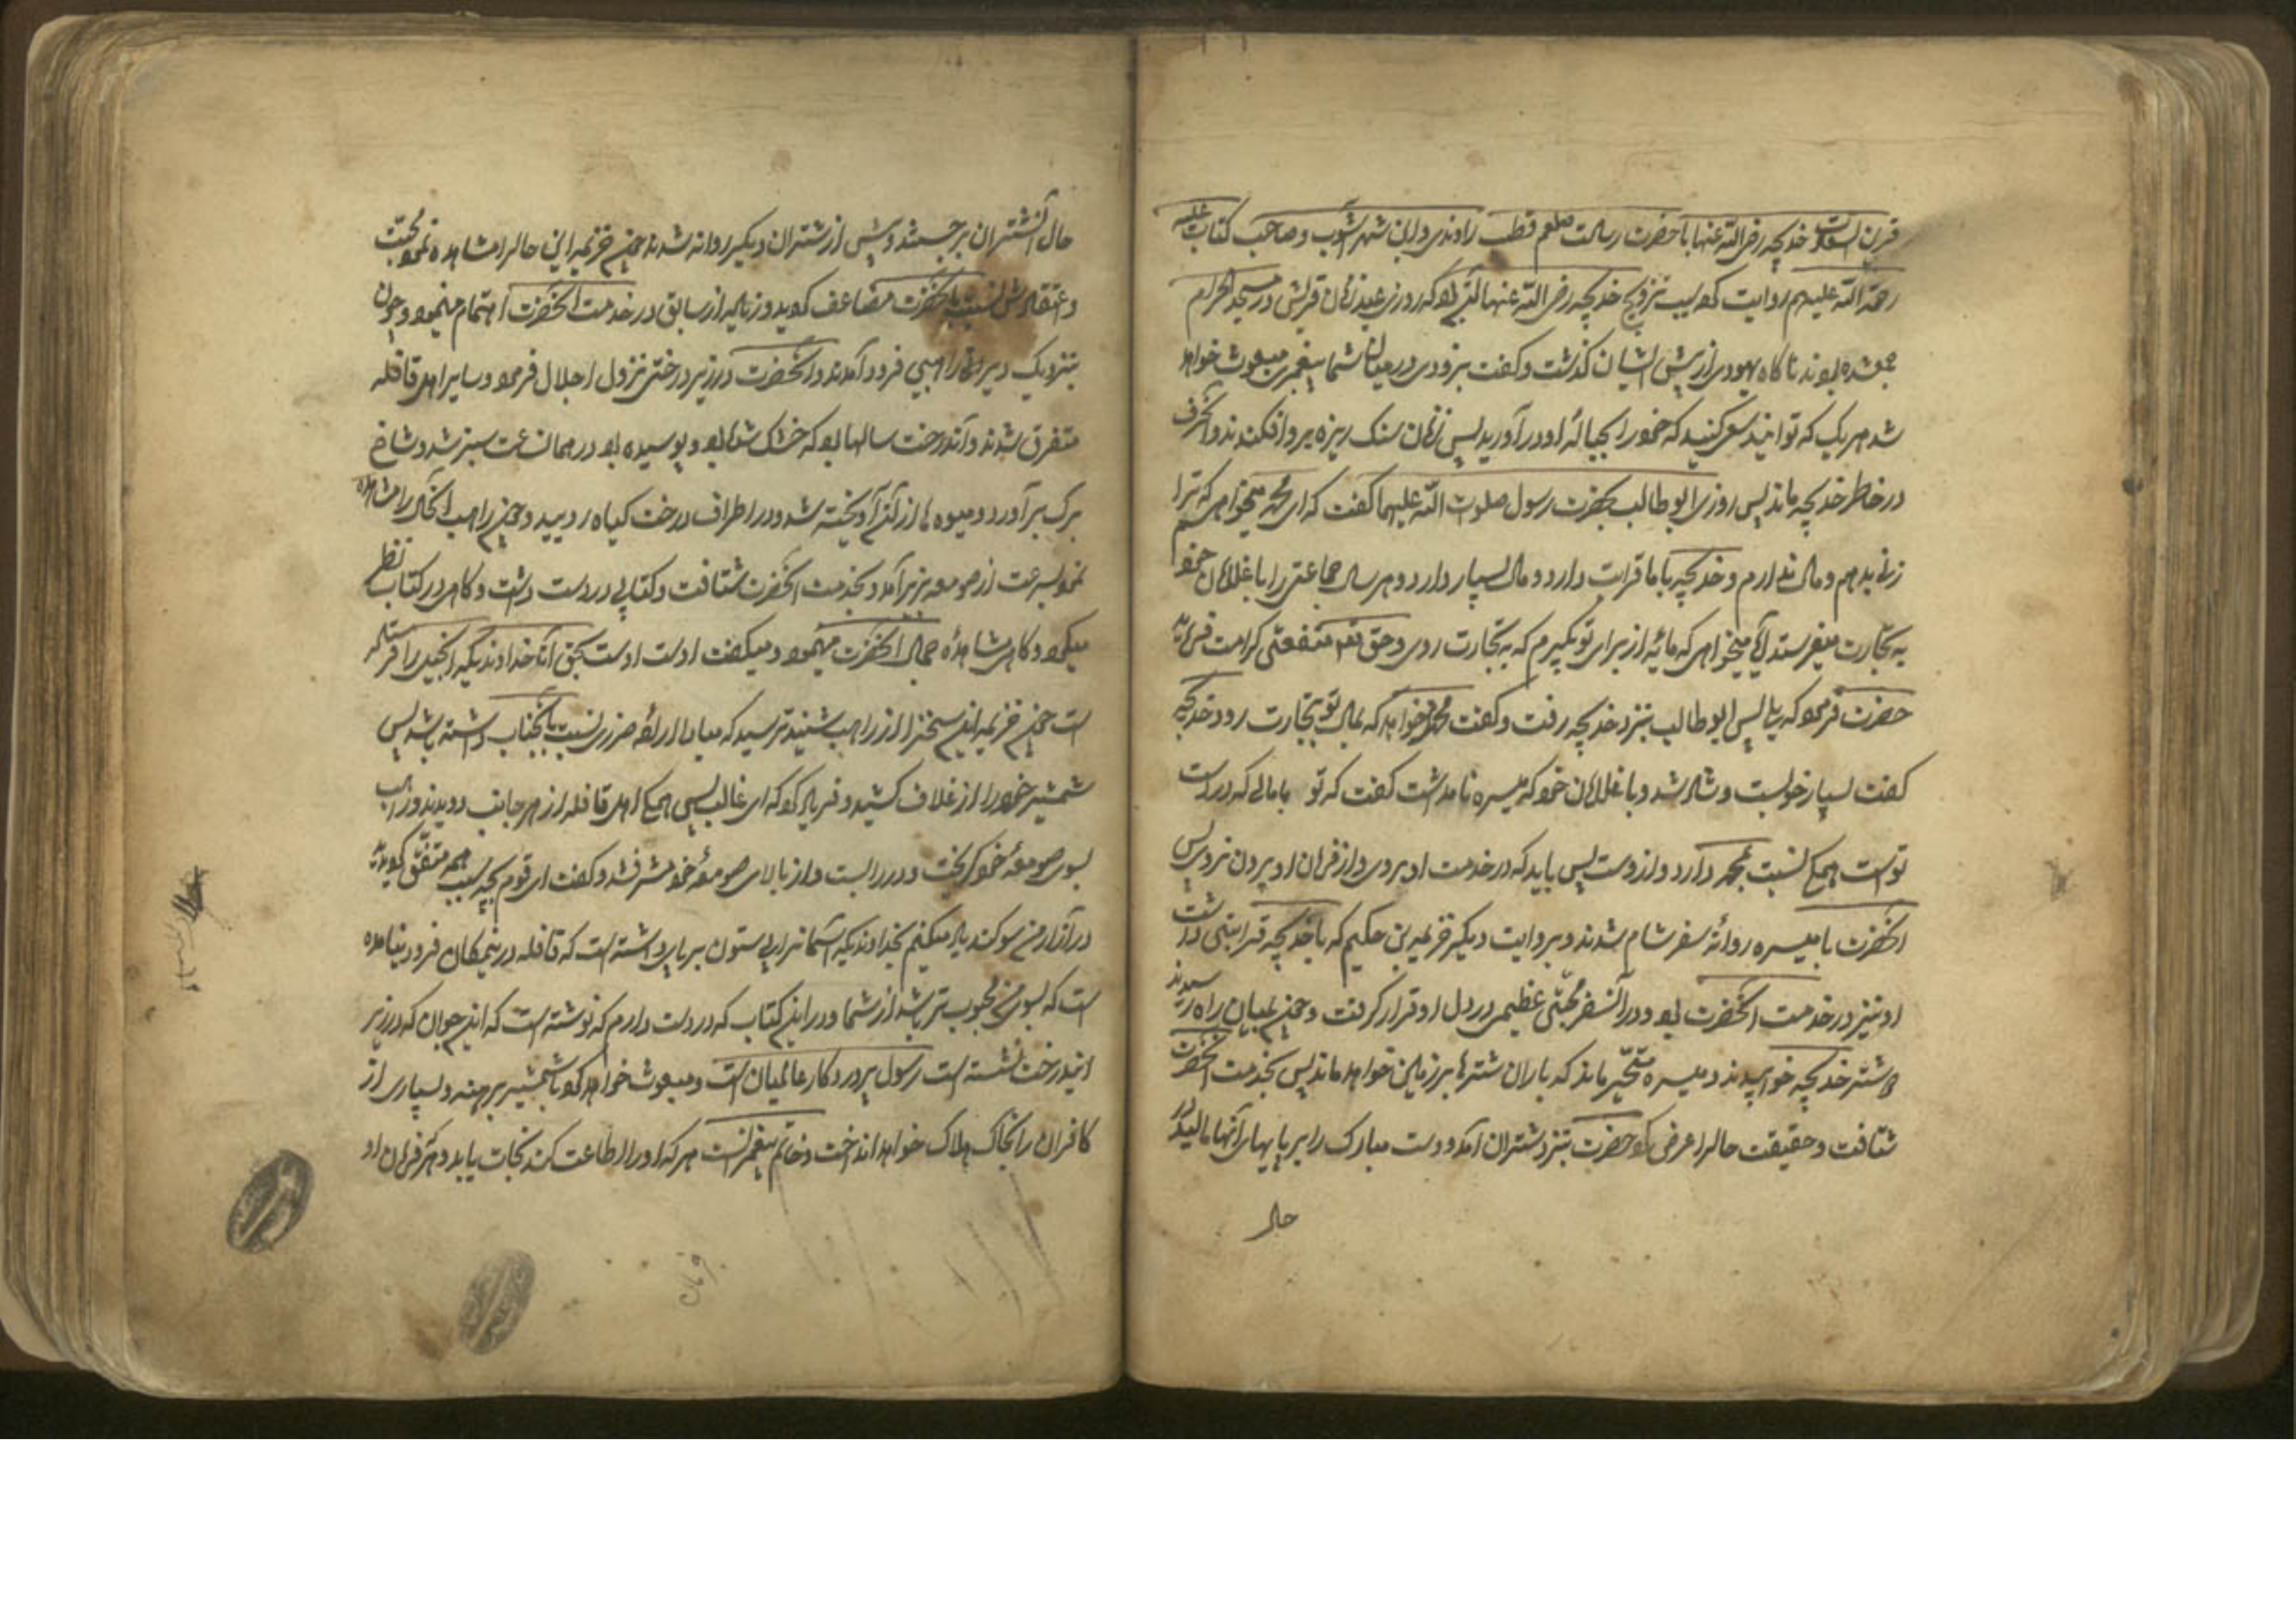 قرین السعادت خدیجه رضی الله عنها با حضرت رسالت صلعم قطب راوندی و ابن شهر آشوب و صاحب کتاب
رحمة الله علیهم روایت کرده سبب تزویج خدیجه رضی الله عنها آن بود که روز عید زنان قریش در مسجد الحرام
جمع شده بودند ناکاه یهودی از پیش ایشان کذشت و کفت بزودی در میان شما پیغمبری مبعوث خواهد
شد هر یک که توانید سعی کنید که خود را بحباله او در آورید پس زنان سنک ریزه بر او افکندند و آنحرف
در خاطر خدیجه ماند پس روزی ابو طالب بحضرت رسول صلوت الله علیهما کفت که ای محمد میخواهم که ترا
زنی بدهم و مال ندارم و خدیجه با ما قرابت دارد و مال بسیار دارد و هر سال جماعتی را با غلامان خود
به تجارت میفرستد آیا میخواهی که مایه از برای تو بکیرم که به تجارت روی و حق تعم منفعتی کرامت فرماید
حضرت فرمود که بلی پس ابو طالب بنزد خدیجه رفت و کفت محمد میخواهد که بمال تو بتجارت رود خدیجه
کفت بسیار خوبست و شاد شد و با غلامان خود که میسره نام داشت کفت که تو با مالی که در دست
تو است همکی نسبت بمحمد دارد و از وست پس باید که در خدمت او بروی و از فرمان او بیرون نروی پس
آنحضرت با میسره روانه سفر شام شدند و بروایت دیکر خزیمه بن حکیم که با خدیجه قرابتی داشت
او نیز در خدمت آنحضرت بود و در آنسفر محبتی عظیم در دل او قرار کرفت و چون بمیان راه رسیدند
دو شتر خدیجه خوابیدند و میسره متحیر ماند که باران شترها بر زمین خواهد ماند پس بخدمت آنحضرت
شتافت و حقیقت حال را عرض کرد حضرت بنزد شتران آمد و دست مبارک را بر پایهای آنها مالید در
حال
حال آنشتران برجستند و پیش از شتران دیکر روانه شدند چون خزیمه این حال را مشاهده نمود محبت
و اعتقادش نسبت بآنحضرت مضاعف کردید و زیاده از سابق در خدمت آنحضرت اهتمام مینمود و چون
بنزدیک دیر راهبی فرود آمدند و آنحضرت در زیر درختی نزول اجلال فرمود و سایر اهل قافله
متفرق شدند و آندرخت سالها بود که خشک شده بود و پوسیده بود در همان ساعت سبز شد و شاخ
برک بر آورد و میوه ها از آن آویخته شد و در اطراف درخت کیاه رویید و چون راهب آنحال را مشاهده
نمود بسرعت از صومعه بزیر آمد و بخدمت آنحضرت شتافت و کتابی در دست داشت و کاهی در کتاب نظر
میکرد و کاهی مشاهده جمال آنحضرت مینمود و میکفت اوست اوست بحق آنخداوندیکه انجیل را فرستاده
است چون خزیمه این سخن را از راهب شنید ترسید که مبادا اراده ضرری نسبت بآنجناب داشته باشد پس
شمشیر خود را از غلاف کشید و فریاد کرد که ای غالب پس همکی اهل قافله از هر جانب دویدند و راهب
بسوی صومعه خود کریخت و در را بست و از بالای صومعه خود مشرف شد و کفت ای قوم بچه سبب همه متفق کردیده
در آزار من سوکند یاد میکنم بخداوندیکه آسمانرا بی ستون برپای داشته است که قافله در اینمکان فرود نیامده
است که بسوی من محبوب تر باشد از شما و در این کتاب که در دست دارم که نوشته است که این جوان که در زیر
ایندرخت نشسته است رسول پروردکار عالمیان است و مبعوث خواهد کردید با شمشیر برهنه و بسیاری از
کافران را بخاک هلاک خواهد انداخت و خاتم پیغمبرانست هر که او را اطاعت کند نجات یابد و هر که فرمان او